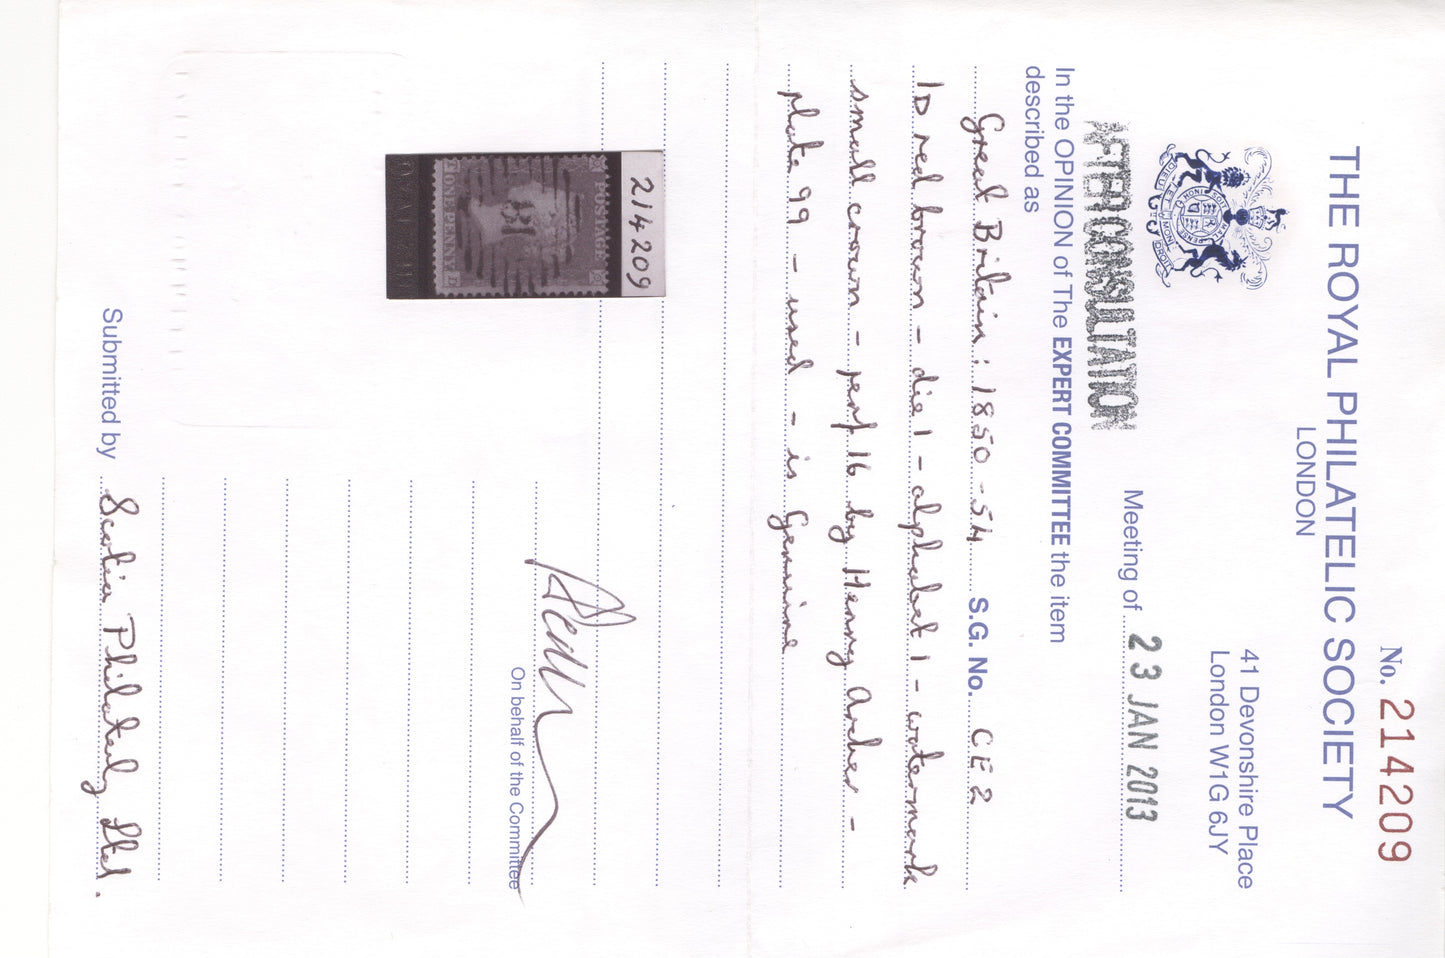 No. 214209
THE ROYAL PHILATELIC SOCIETY
LONDON
41 Devonshire Place
London W1G 6JY
DIEU ET MON DROIT
AFTER CONSULTATION
Meeting of 23 JAN 2013
In the OPINION of The EXPERT COMMITTEE the item
described as
Great Britain: 1850-54 S.G. No. CE2
1D red brown - die 1 - alphabet 1 - watermark
small crown - perf 16 by Henry Archer -
plate 99 - used - is genuine
214209
POSTAGE
ONE PENNY
On behalf of the Committee
Submitted by Scotia Philately Ltd.